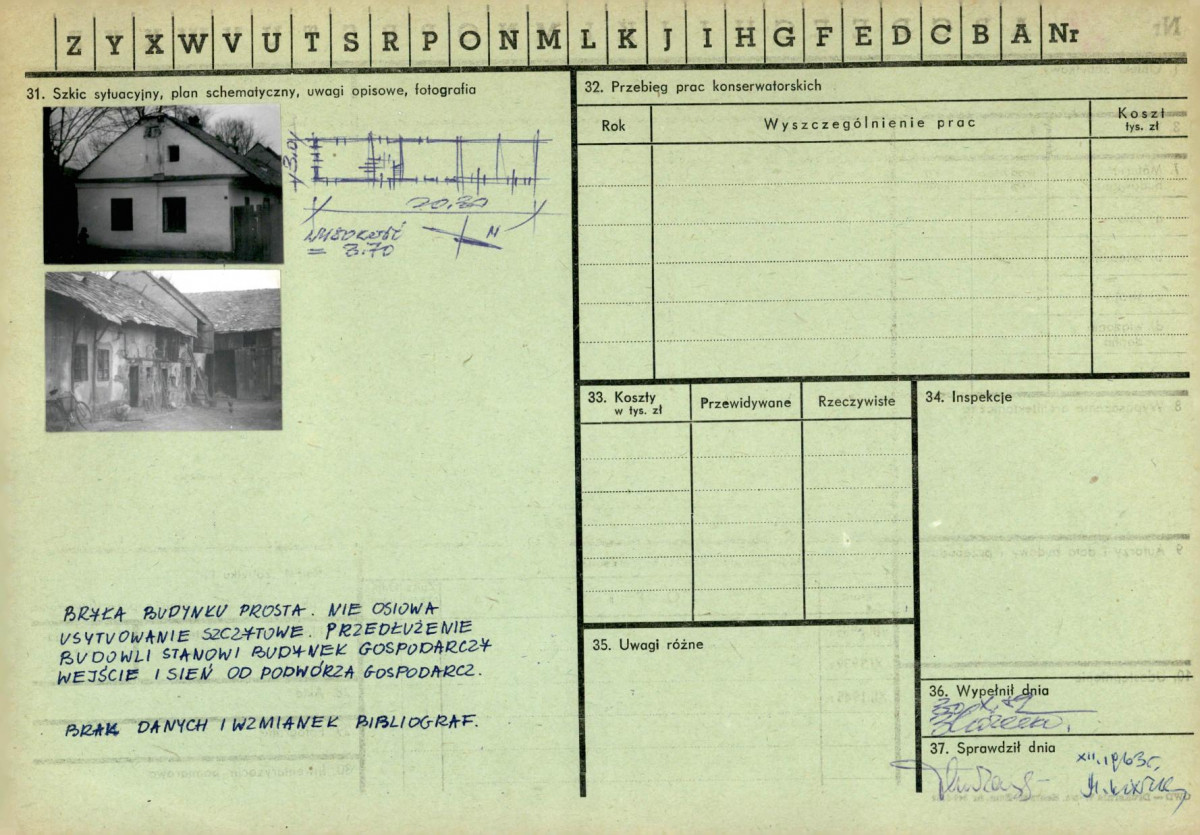 Z Y X W V U T S R P O N M L K J I H G F E D C B A Nr
31. Szkic sytuacyjny, plan schematyczny, uwagi opisowe, fotografia
20.30
WYSOKOŚĆ
= 3.70
N
BRYŁA BUDYNKU PROSTA. NIE OSIOWA
USYTUOWANIE SZCZYTOWE. PRZEDŁUŻENIE
BUDOWLI STANOWI BUDYNEK GOSPODARCZY
WEJŚCIE I SIEŃ OD PODWÓRZA GOSPODARCZ.
BRAK DANYCH I WZMIANEK BIBLIOGRAF.
32. Przebieg prac konserwatorskich
Rok
Wyszczególnienie prac
Koszt
tys. zł
33. Koszty
w tys. zł
Przewidywane
Rzeczywiste
34. Inspekcje
35. Uwagi różne
36. Wypełnił dnia
37. Sprawdził dnia
XII.1963r.